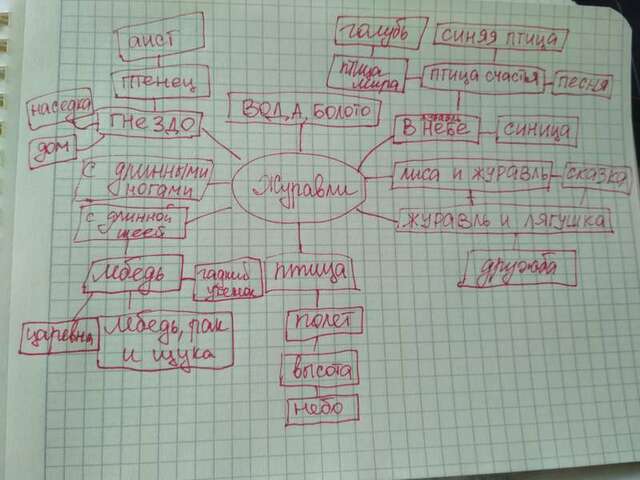 аист
птенец
наседка
гнездо
дом
с длинными
ногами
с длинной
шеей
лебедь
гадкий
утенок
царевна
Лебедь, рак
и щука
Вода, болото
Журавли
птица
полет
высота
небо
голубь
птица
мира
синяя птица
птица счастья
песня
В небе
синица
лиса и журавль
сказка
журавль и лягушка
дружба